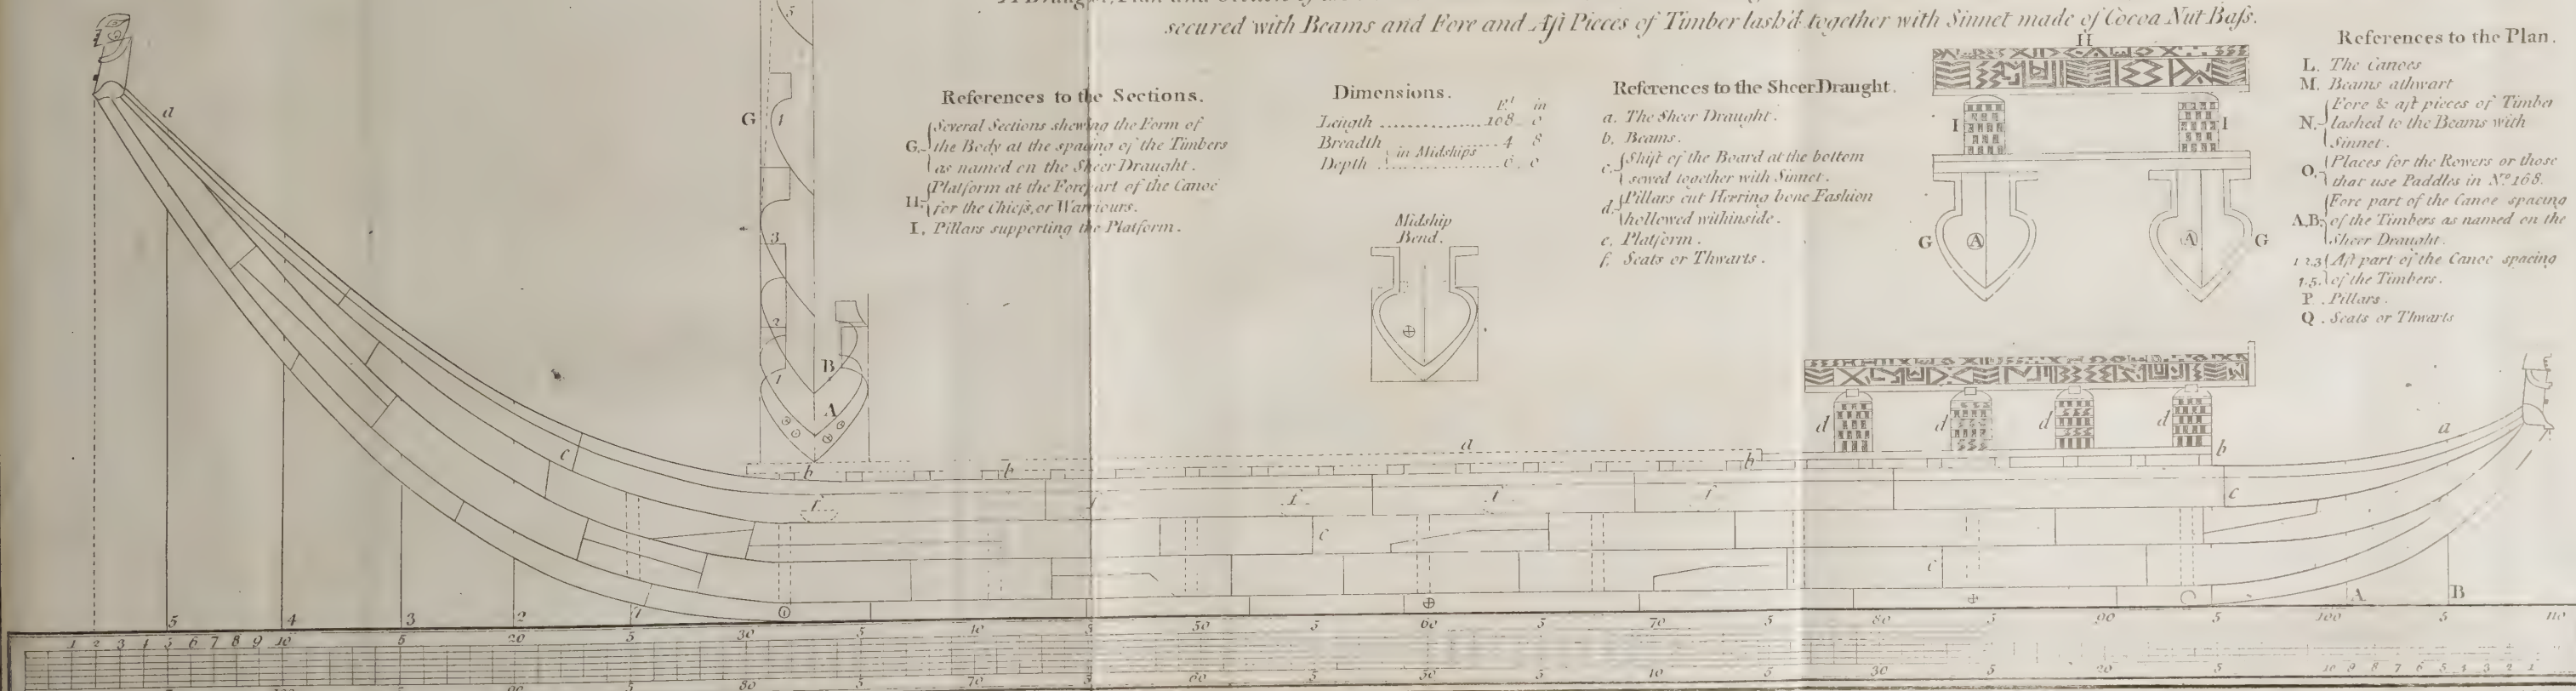 secured with Beams and Fore and Aft Pieces of Timber lash'd together with Sinnet made of Cocoa Nut Bass.
References to the Sections.
G. Several Sections shewing the Form of
the Body at the spacing of the Timbers
as named on the Sheer Draught.
H. Platform at the Forepart of the Canoe
for the Chiefs, or Warriours.
I. Pillars supporting the Platform.
Dimensions.
Ft in
Length ............... 108 0
Breadth } in Midships ...... 4 8
Depth } ............... 6 0
Midship
Bend.
References to the Sheer Draught.
a. The Sheer Draught.
b. Beams.
c. Shift of the Board at the bottom
sewed together with Sinnet.
d. Pillars cut Herring bone Fashion
hollowed withinside.
e. Platform.
f. Seats or Thwarts.
References to the Plan.
L. The Canoes
M. Beams athwart
N. Fore & aft pieces of Timber
lashed to the Beams with
Sinnet.
O. Places for the Rowers or those
that use Paddles in No. 168.
A,B, Fore part of the Canoe spacing
of the Timbers as named on the
Sheer Draught.
1 2.3 Aft part of the Canoe spacing
4.5. of the Timbers.
P. Pillars.
Q. Seats or Thwarts
H
I I
G A A G
5
G 1
3
2
1 B
A
a
c
b b a b
d d d d
b
a
c
f f f f f
c
c
5 4 3 2 1 A B
1 2 3 4 5 6 7 8 9 10 5 20 5 30 5 40 5 50 5 60 5 70 5 80 5 90 5 100 5 110
90 5 80 5 70 5 60 5 50 5 40 5 30 5 20 5 10 9 8 7 6 5 4 3 2 1